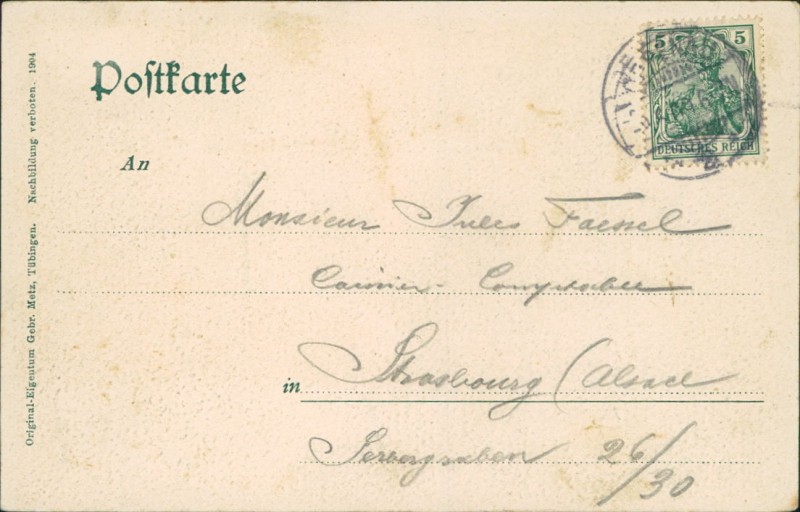 Postkarte
5 5
DEUTSCHES REICH
An
Monsieur Jules Faessel
Caissier-Comptable
in Strasbourg (Alsace
Gerbergraben 26/30
Original-Eigentum Gebr. Metz, Tübingen. Nachbildung verboten. 1904